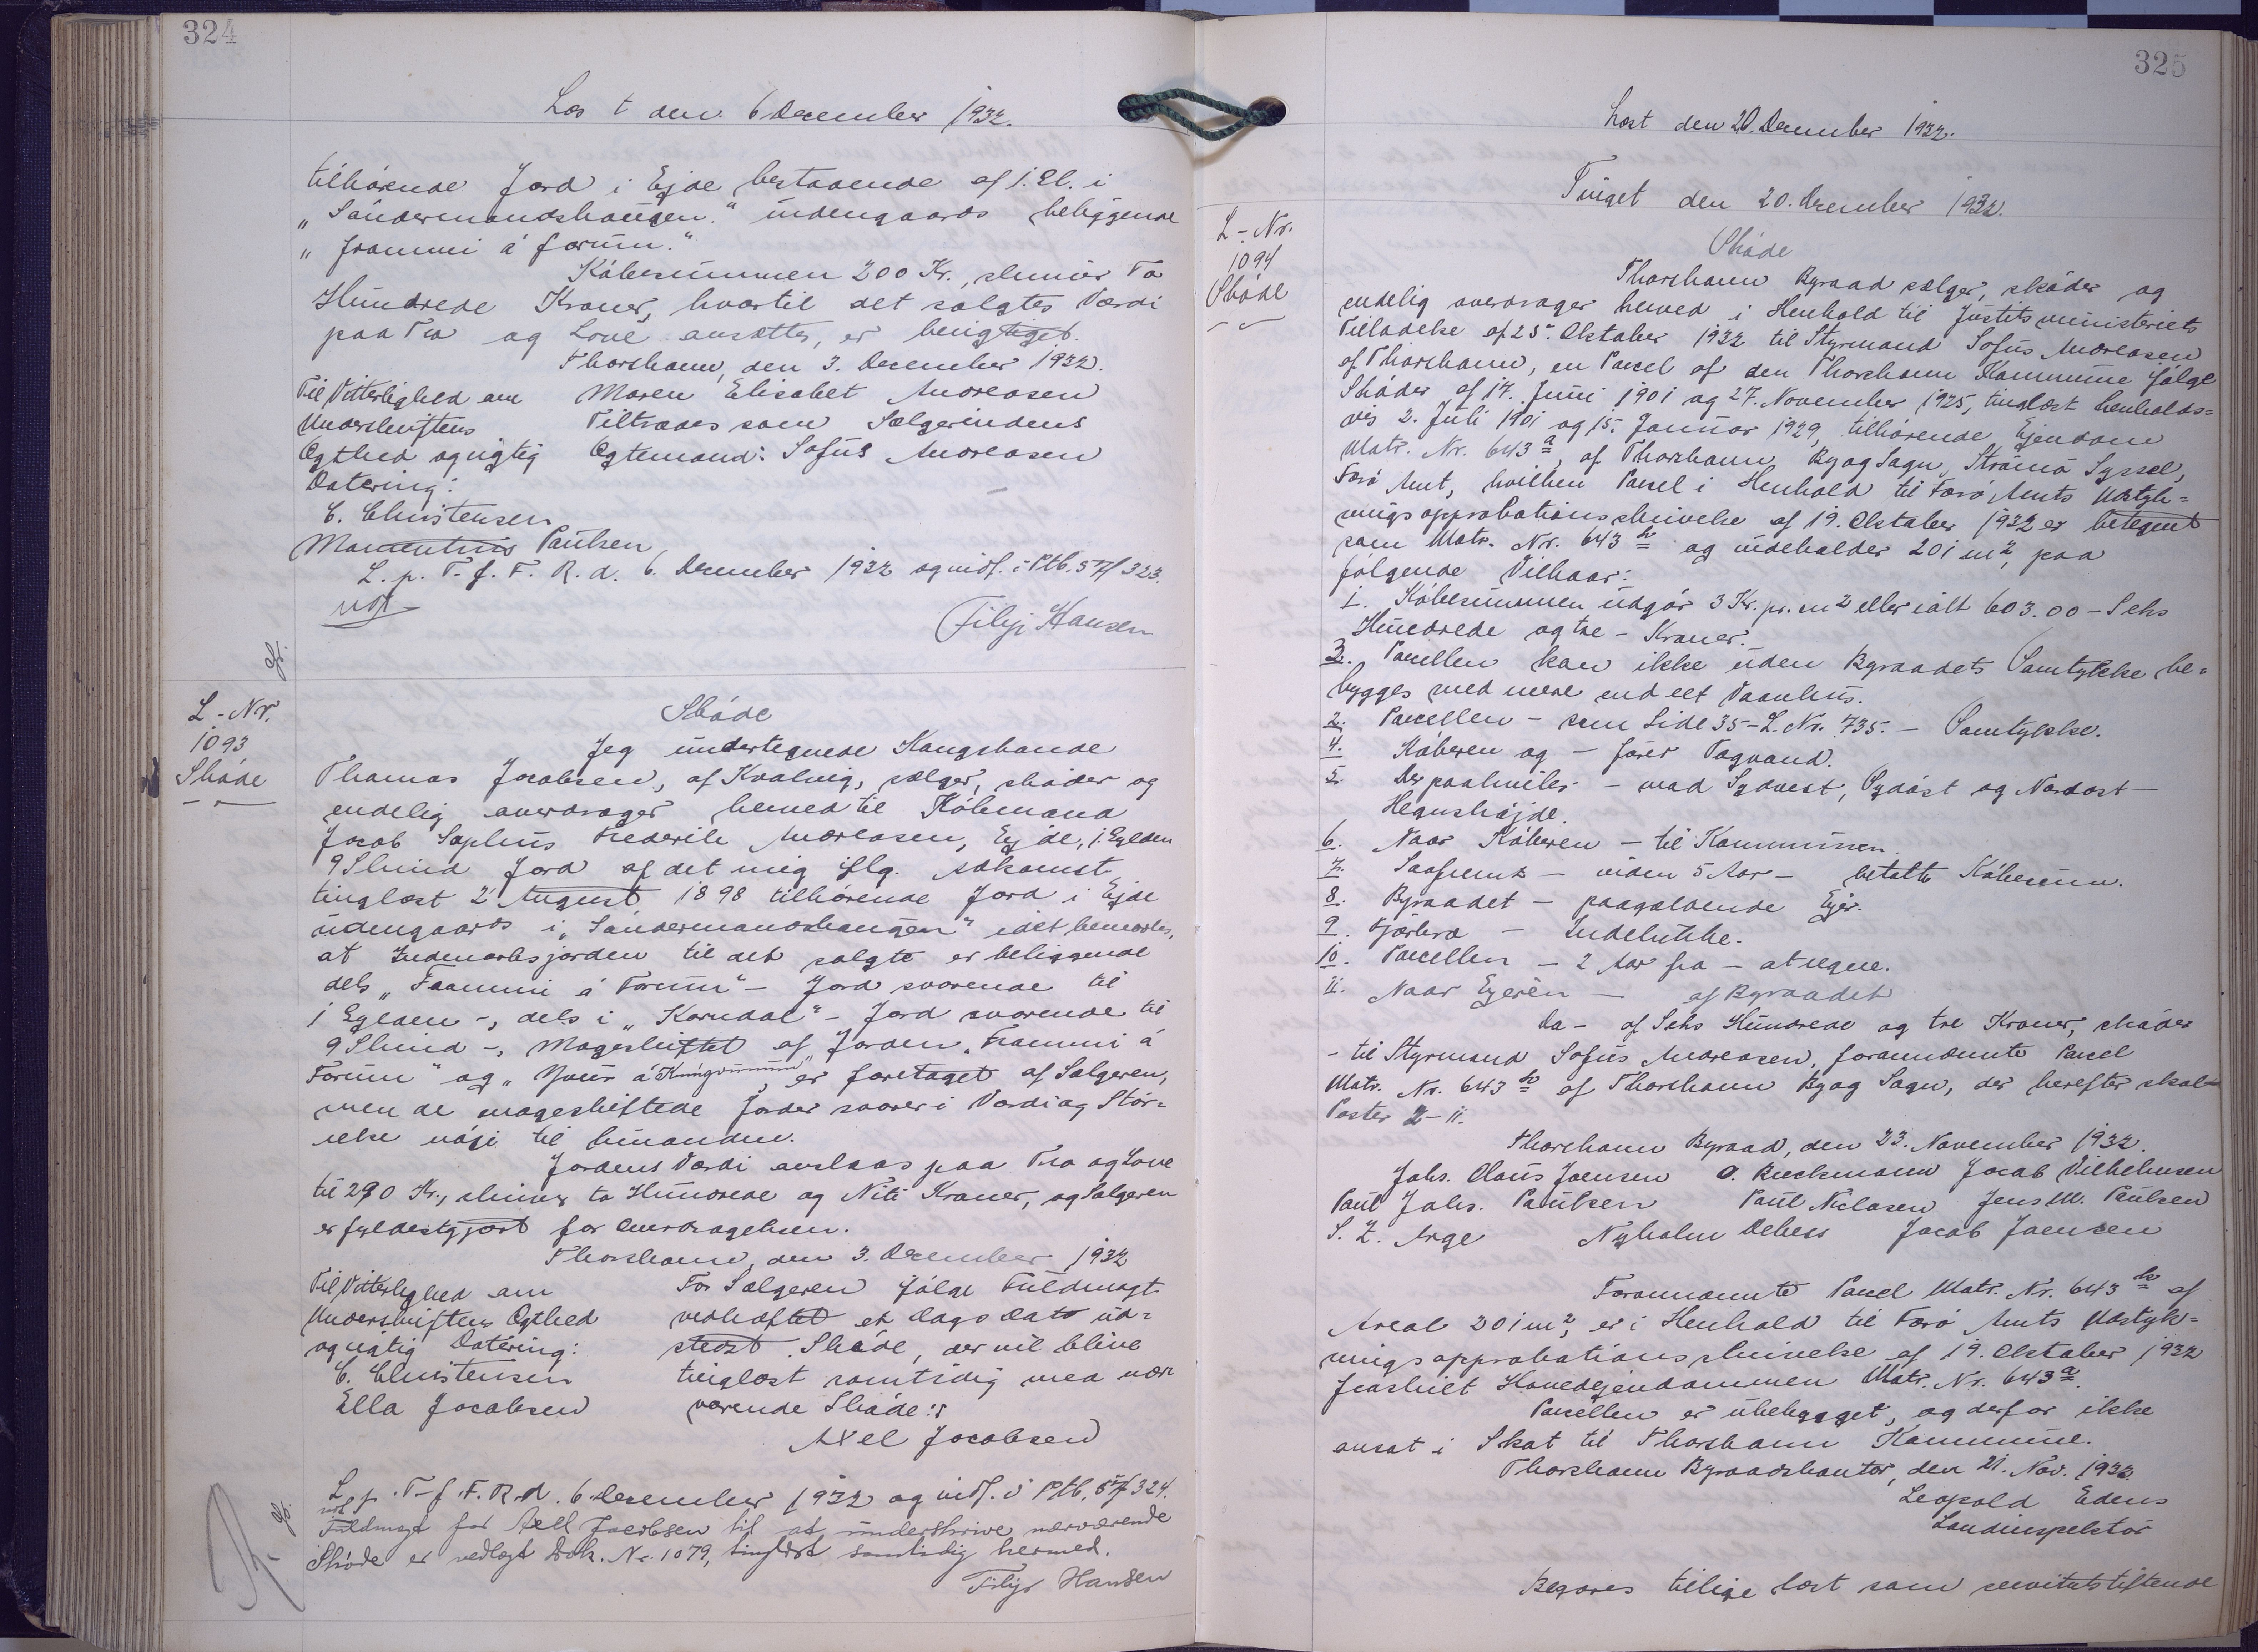 324
Læst den 6 December 1932.
tilhørende Jord i Ejde bestaaende af 1. Gl. i
„Sandermandshaugen." udengaards beliggende
„frammi á forum."
Købesummen 200 Kr., skriver To
Hundrede Kroner, hvortil det solgtes Værdi
paa Tro og Love ansættes, er berigtiget.
Thorshavn, den 3. December 1932.
Til Vitterlighed om Maren Elisabet Andreasen
Underskriftens Tiltrædes som Sælgerindens
Ægthed og rigtig Ægtemand: Sofus Andreasen
Datering:
C. Christensen
Poulsen
L. p. T. f. F. R. d. 6. December 1932 og indf. i Ptb. 5 Pf 323.
Filip Hansen
L-Nr.
1093
Skøde
Skøde
Jeg undertegnede Kongsbonde
Thomas Jacobsen, af Kvalvig, sælger, skøder og
endelig overdrager herved til Købmand
Jacob Sophus Frederik Andreasen, Ejde, 1 Gylden
9 Skind Jord af det mig iflg. Adkomst
tinglæst 2 August 1898 tilhørende Jord i Ejde
udengaards i „Sandermandshaugen" idet bemærkes,
at Indmarksjorden til det solgte er beliggende
dels „Frammi á Forum" - Jord svarende til
1 Gylden -, dels i „Korndal" - Jord svarende til
9 Skind -, Mageskiftet af Jorden „Frammi á
Forum" og „ á er foretaget af Sælgeren,
men de mageskiftede Jorder svarer i Værdi og Stør=
relse nøje til hinanden.
Jordens Værdi ansloas paa Tro og Love
til 290 Kr., skriver to Hundrede og Niti Kroner, og Sælgeren
er fyldestgjort for Overdragelsen.
Thorshavn, den 3. December 1932
Til Vitterlighed om For Sælgeren ifølge Fuldmagt
Underskriftens Ægthed vedhæftet et Dags Dato ud=
og rigtig Datering: stedt Skøde, der vil blive
C. Christensen tinglæst samtidig med nær
Ella Jacobsen værende Skøde:
Axel Jacobsen
L. p. T. f. F. R. d. 6. December 1932 og indf. i Ptb. 5 Pf 324.
Fuldmagt for Axel Jacobsen til at underskrive nærværende
Skøde er vedlagt Dok. Nr. 1079, tinglæst samtidig hermed.
Filip Hansen
325
Læst den 20. December 1932.
Tinget den 20. December 1932.
L-Nr.
1094
Skøde
Skøde
Thorshavn Byraad sælger, skøder og
endelig overdrager herved i Henhold til Justitsministeriets
Tilladelse af 25. Oktober 1932 til Styrmand Sofus Andreasen
af Thorshavn, en Parcel af den Thorshavn Kommune ifølge
Skøder af 17. Juni 1901 og 27. November 1925, tinglæst henholds=
vis 2. Juli 1901 og 15. Januar 1929, tilhørende Ejendom
Matr. Nr. 643 a, af Thorshavn By og Sogn, Strømø Syssel,
Færø Amt, hvilken Parcel i Henhold til Færø Amts Udstyk=
ningsapprobationsskrivelse af 19. Oktober 1932 er betegnet
som Matr. Nr. 643 h og indeholder 201 m2, paa
følgende Vilkaar:
1. Købesummen udgør 3 Kr. pr. m2 eller ialt 603.00 - Seks
Hundrede og tre - Kroner.
3. Parcellen kan ikke uden Byraadets Samtykke be=
bygges med mere end eet Vaanhus.
2. Parcellen - som Side 35 - L. Nr. 735. - Samtykke.
4. Køberen og - forer Tagvand.
5. Der paahviler - mod Sydvest, Sydøst og Nordøst -
Hegnshøjde.
6. Naar Køberen - til Kommunen.
7. Saafremt - inden 5 Aar - betalte Købesum.
8. Byraadet - paagældende Ejer.
9. Fjerkræ - Indelukke.
10. Parcellen - 2 Aar fra - at regne.
11. Naar Ejeren - af Byraadet
Da - af Seks Hundrede og tre Kroner, skøder
- til Styrmand Sofus Andreasen, forannævnte Parcel
Matr. Nr. 643 h af Thorshavn By og Sogn, der herefter skal -
Poster 2 - 11.
Thorshavn Byraad, den 23. November 1932.
Johs. Claus Joensen O. Bueckmann Jacob Vilhelmsen
Paul Johs. Paulsen Paul Niclasen Jens M. Poulsen
S. Z. Arge Nyholm Debess Jacob Joensen
Forannævnte Parcel Matr. Nr. 643 h af
Areal 201 m2, er i Henhold til Færø Amts Udstyk=
ningsapprobationsskrivelse af 19. Oktober 1932
fraskilt Hovedejendommen Matr. Nr. 643 a.
Parcellen er ubebygget, og derfor ikke
ansat i Skat til Thorshavn Kommune.
Thorshavn Byraadskontor, den 21. Nov. 1932
Leopold Edens
Landinspektør
Begæres tillige læst som servitutstiftende